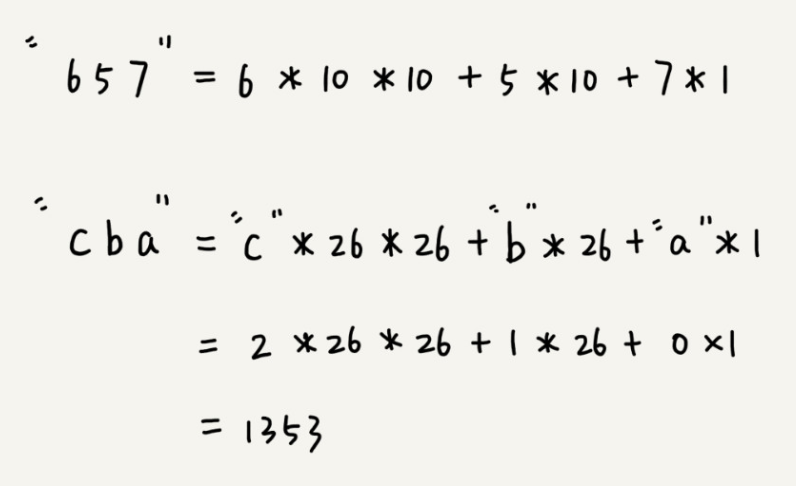 "657" = 6 * 10 * 10 + 5 * 10 + 7 * 1
"cba" = "c" * 26 * 26 + "b" * 26 + "a" * 1
= 2 * 26 * 26 + 1 * 26 + 0 × 1
= 1353